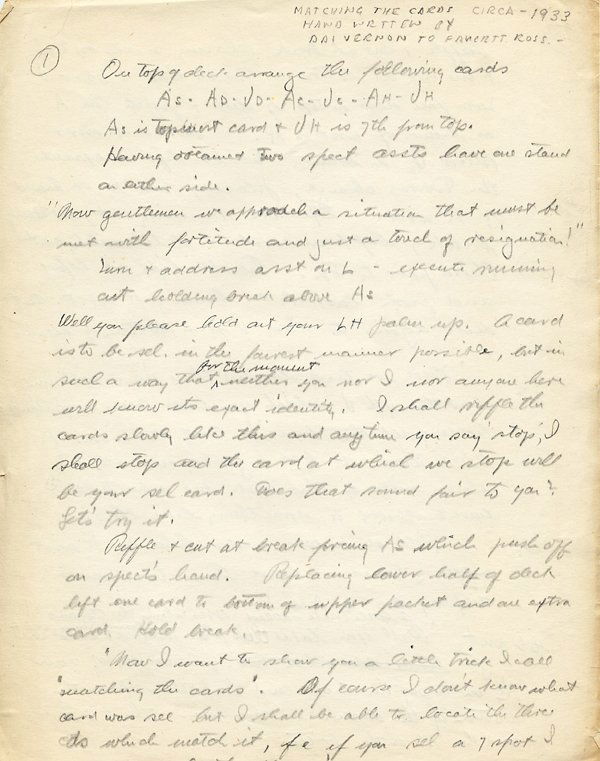 MATCHING THE CARDS CIRCA - 1933
HAND WRTTEN BY
DAI VERNON TO FAUCETT ROSS. -
1
On top of deck arrange the following cards
AS - AD - JD - AC - JC - AH - JH
AS is topmost card + JH is 7th from top.
Having obtained two spect assts have one stand
on either side.
"Now gentlemen we approach a situation that must be
met with fortitude and just a touch of resignation!"
Turn + address asst on L - execute running
cut holding break above AS
Will you please hold out your LH palm up. A card
is to be sel. in the fairest manner possible, but in
for the moment
such a way that neither you nor I nor anyone here
will know its exact identity. I shall riffle the
cards slowly like this and anytime you say 'stop', I
shall stop and the card at which we stop will
be your sel card. Does that sound fair to you?
Let's try it.
Riffle + cut at break forcing AS which push off
on spect's hand. Replacing lower half of deck
left one card to bottom of upper packet and one extra
card. Hold break
"Now I want to show you a little trick I call
"matching the cards". Of course I don't know what
card was sel but I shall be able to locate the three
cds which match it, f e if you sel a 7 spot I